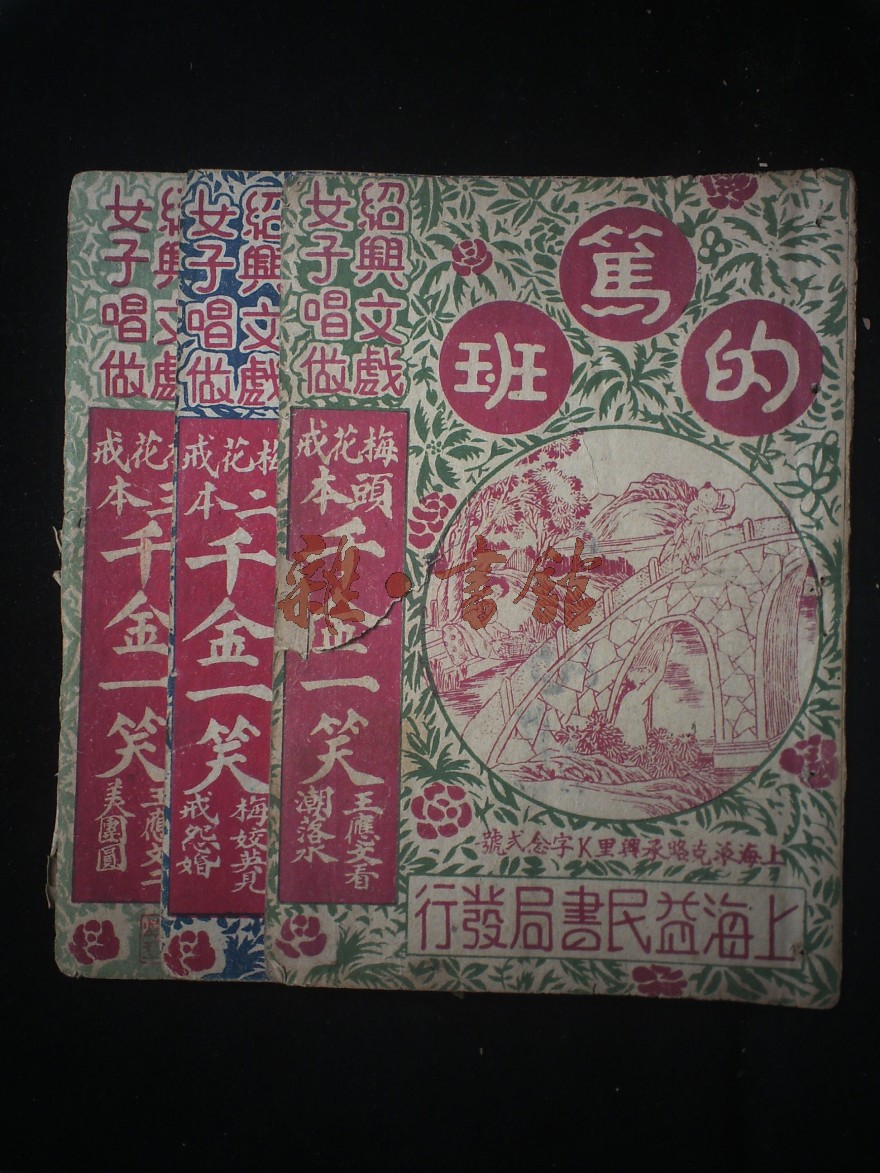 的篤班
上海派克路承興里K字念弍號
上海益民書局發行
紹興文戲
女子唱做
梅花戒
頭本
千金一笑
王應文看
潮落水
紹興文戲
女子唱做
梅花戒
二本
千金一笑
梅姣英見
戒怨婚
紹興文戲
女子唱做
花戒
三本
千金一笑
王應文二
美團圓
雜·書館